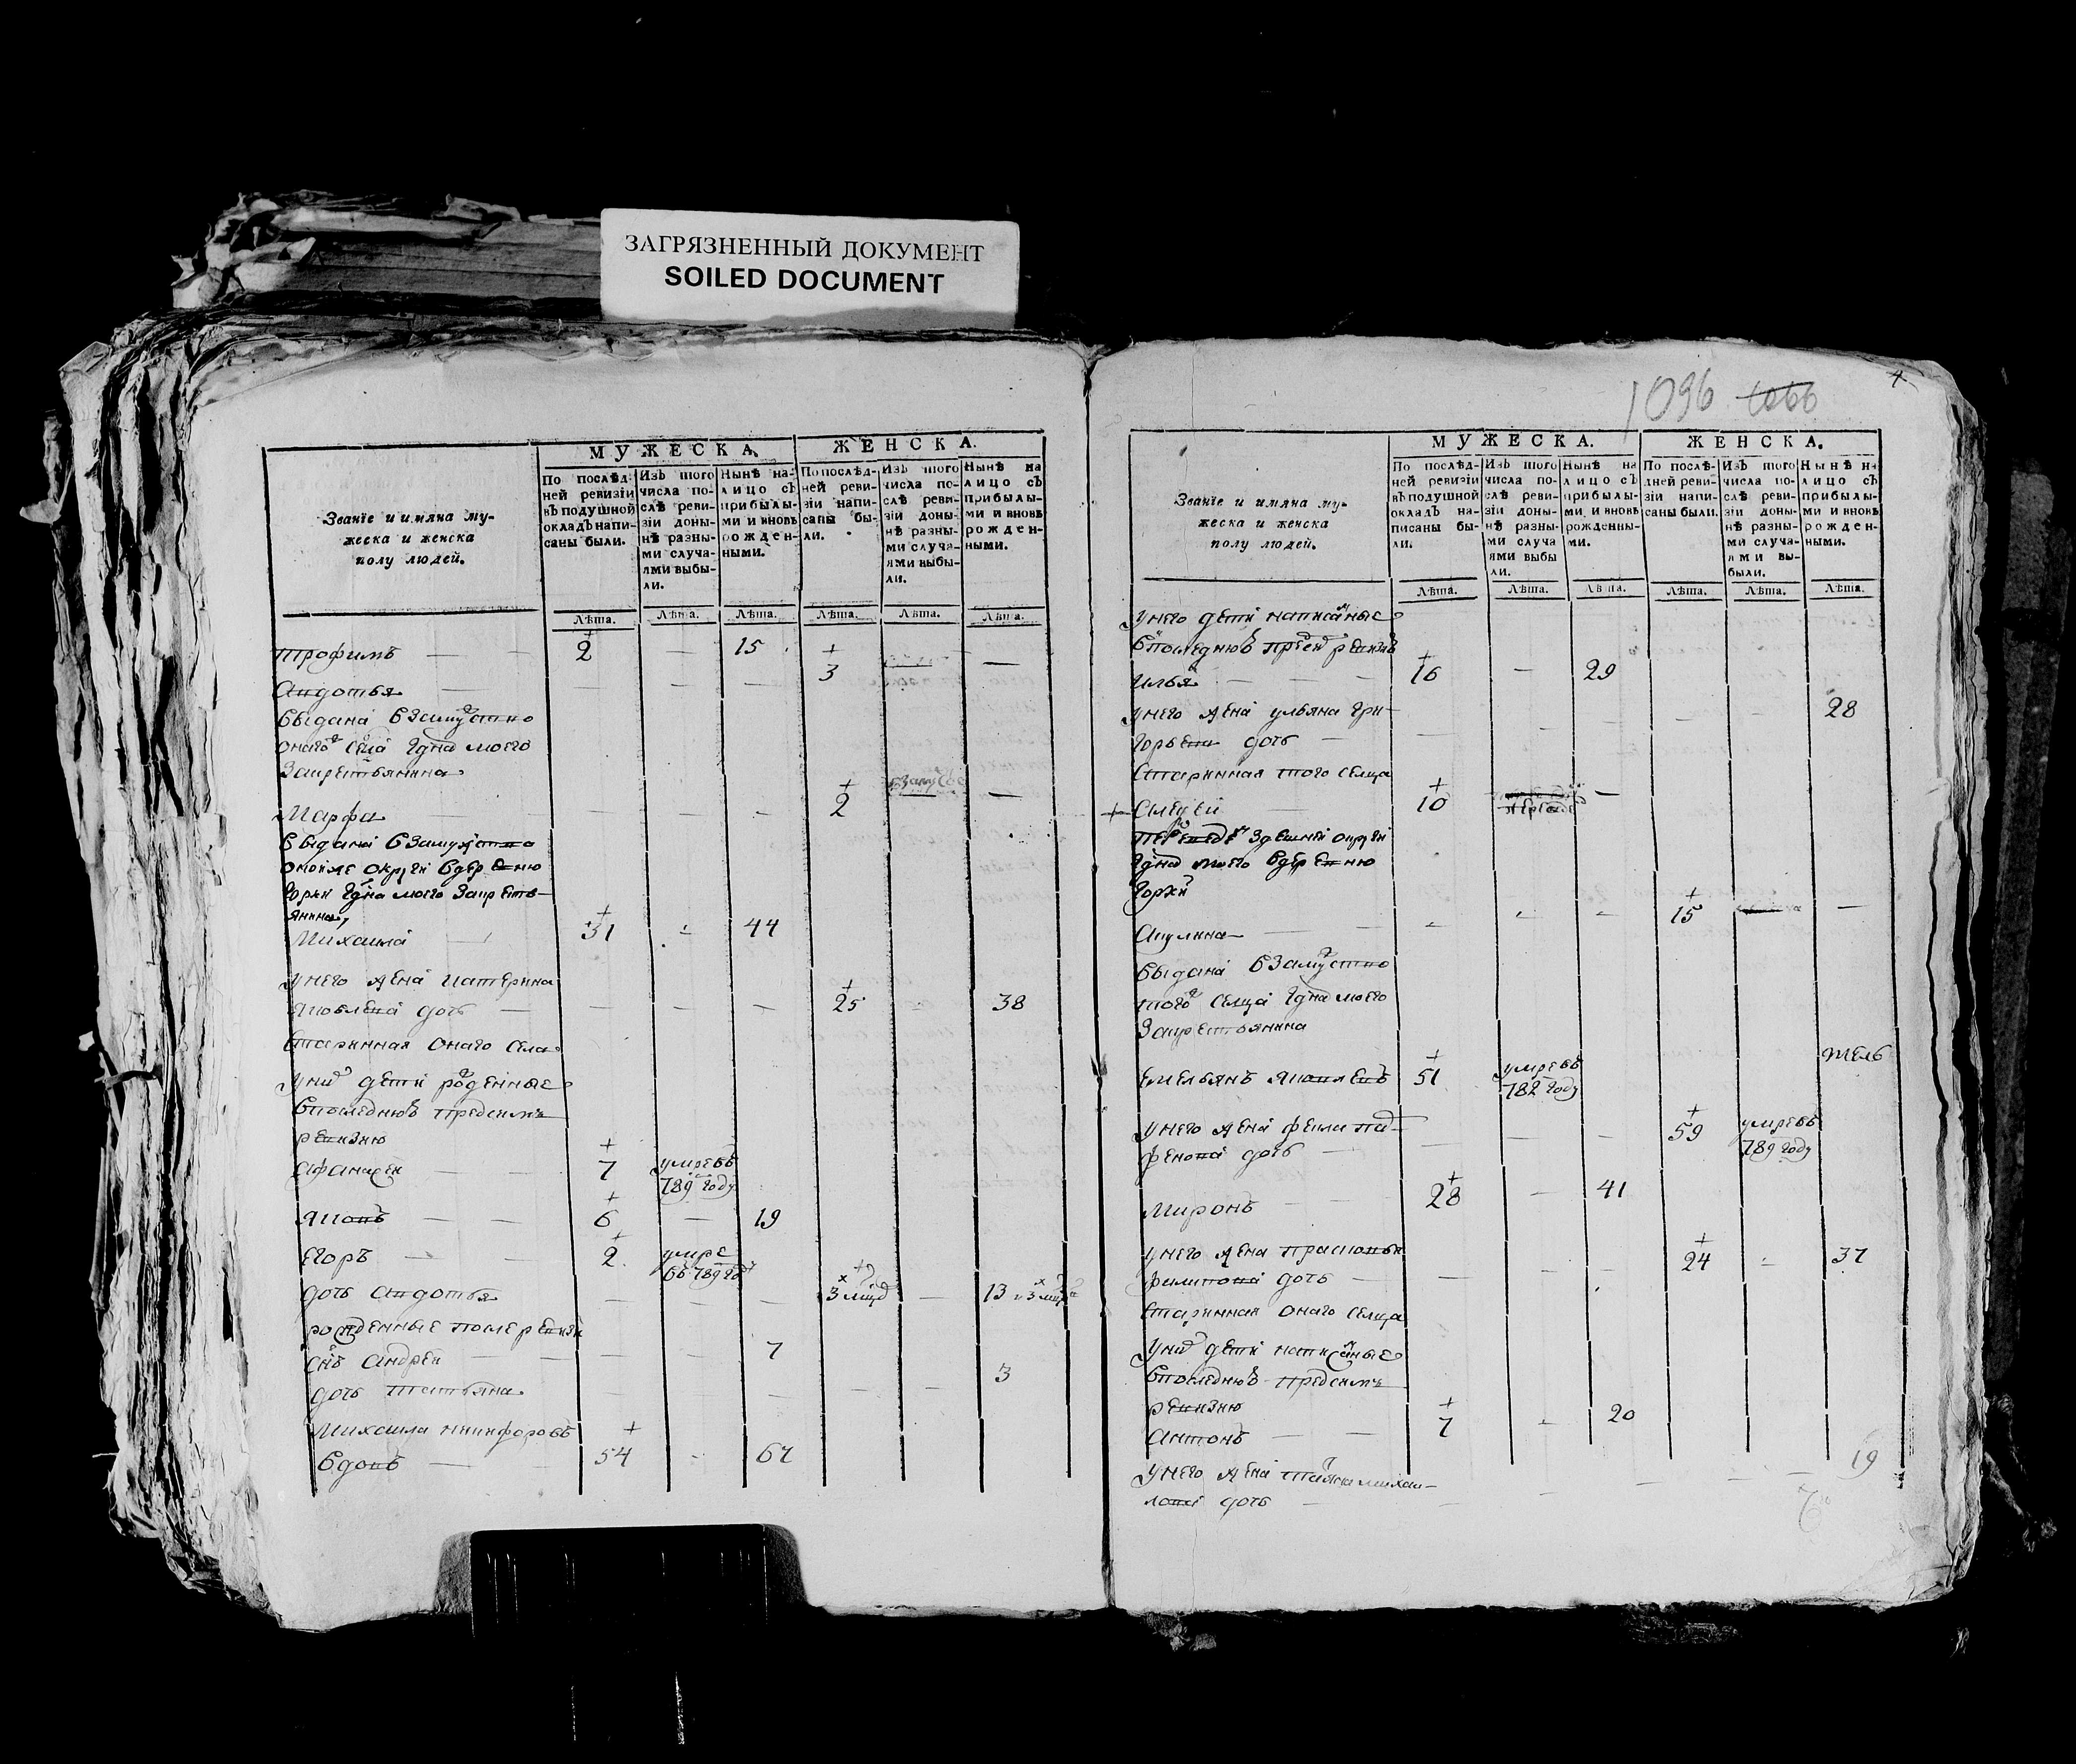 ЗАГРЯЗНЕННЫЙ ДОКУМЕНТ
SOILED DOCUMENT
Званїе и имяна му-
жеска и женска
полу людей.
МУЖЕСКА.
ЖЕНСКА.
По послѣд-
ней ревизіи
въ подушной
окладъ напи-
саны были.
Изъ того
числа по-
слѣ реви-
зіи доны-
нѣ разны-
ми случа-
ями выбы-
ли.
Нынѣ на-
лицо съ
прибылы-
ми и вновь
рожден-
ными.
По послѣд-
ней реви-
зіи напи-
саны бы-
ли.
Изъ того
числа по-
слѣ реви-
зіи доны-
нѣ разны-
ми случа-
ями выбы-
ли.
Нынѣ на
лицо съ
прибылы-
ми и вновь
рожден-
ными.
Лѣта. Лѣта. Лѣта. Лѣта. Лѣта. Лѣта.
трофимъ — — 2 — 15
Авдотья — 3 — —
выдана взамужство
онаго села
закрестьянина
Марфа — 2 — —
выдана взамужство
оной же округи вдеревню
закресть-
янина
Михаила — 31 - 44
унего жена катерина
яковлева дочь — 25 - 38
старинная онаго села
унихъ дети
впоследнюю предсимъ
ревизию
афанасей — 7 умре въ
789 году
яковъ — — 6 — 19
егоръ — — 2 умре
въ 789 году
дочь авдотья — 3 — 13
рожденные после ревизи
снъ андрей — 7
дочь татьяна — 3
михаила никифоровъ
вдовъ — 54 - 67
1096
4
Званїе и имяна му-
жеска и женска
полу людей.
МУЖЕСКА.
ЖЕНСКА.
По послѣд-
ней ревизіи
въ подушной
окладъ на-
писаны бы-
ли.
Изъ того
числа по-
слѣ реви-
зіи доны-
нѣ разны-
ми случа
ями выбы
ли.
Нынѣ на
лицо съ
прибылы-
ми и вновь
рожденны-
ми.
По послѣ-
дней реви-
зіи напи-
саны были.
Изъ того
числа по-
слѣ реви-
зіи доны-
нѣ разны-
ми случа-
ями вы-
были.
Нынѣ на
лицо съ
прибылы-
ми и вновь
рожден-
ными.
Лѣта. Лѣта. Лѣта. Лѣта. Лѣта. Лѣта.
унего дети написаные
впоследнюю пред ревизию
илья — 16 — 29
унего жена ульяна гри- 28
горьева дочь —
старинная того селца
Алексей 10 —
вдеревню
Акулина — 15 —
выдана взамужство
того селца
закрестьянина
емельянъ яковлевъ 51 умре въ
782 году
унего жена фекла пар-
фенова дочь — 59 умре въ
789 году
миронъ — 28 — 41
унего жена прасковья
филипова дочь — 24 - 37
старинная онаго селца
унихъ дети написаные
впоследнюю предсимъ
ревизию
антонъ — — 7 - 20
унего жена татьяна михаи-
лова дочь — 19